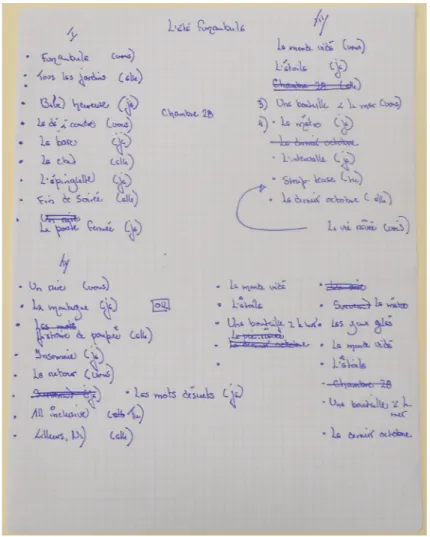 L'été funambule
I
• Funambule (vous)
• Tous les jardins (elle)
• Bulle heureuse (je)
• Le dé à coudre (vous)
• Le baiser (je)
• Le chat (elle)
• L'épingle (je)
• Fin de soirée (elle)
• La porte fermée (je)
Chambre 28
Le monde vidé (vous)
L'étoile (je)
Chambre 28 (elle)
3) Une bouteille à la mer (vous)
4) • Le métro (je)
Le dernier octobre
• L'intervalle (je)
• Strip tease (tu)
• Le dernier octobre (elle)
La vie rêvée (vous)
• Un (vous)
• La montagne (je)
OR
histoire de poupée (elle)
• Insomnie (je)
• Le retour (vous)
• Les mots désunis (je)
• All inclusive (tu)
• (elle)
• Le monde vidé
• L'étoile
• Une bouteille à la mer
Le dernier octobre
Le métro
• Les yeux gelés
• Le monde vidé
• L'étoile
Chambre 28
• Une bouteille à la mer
• Le dernier octobre